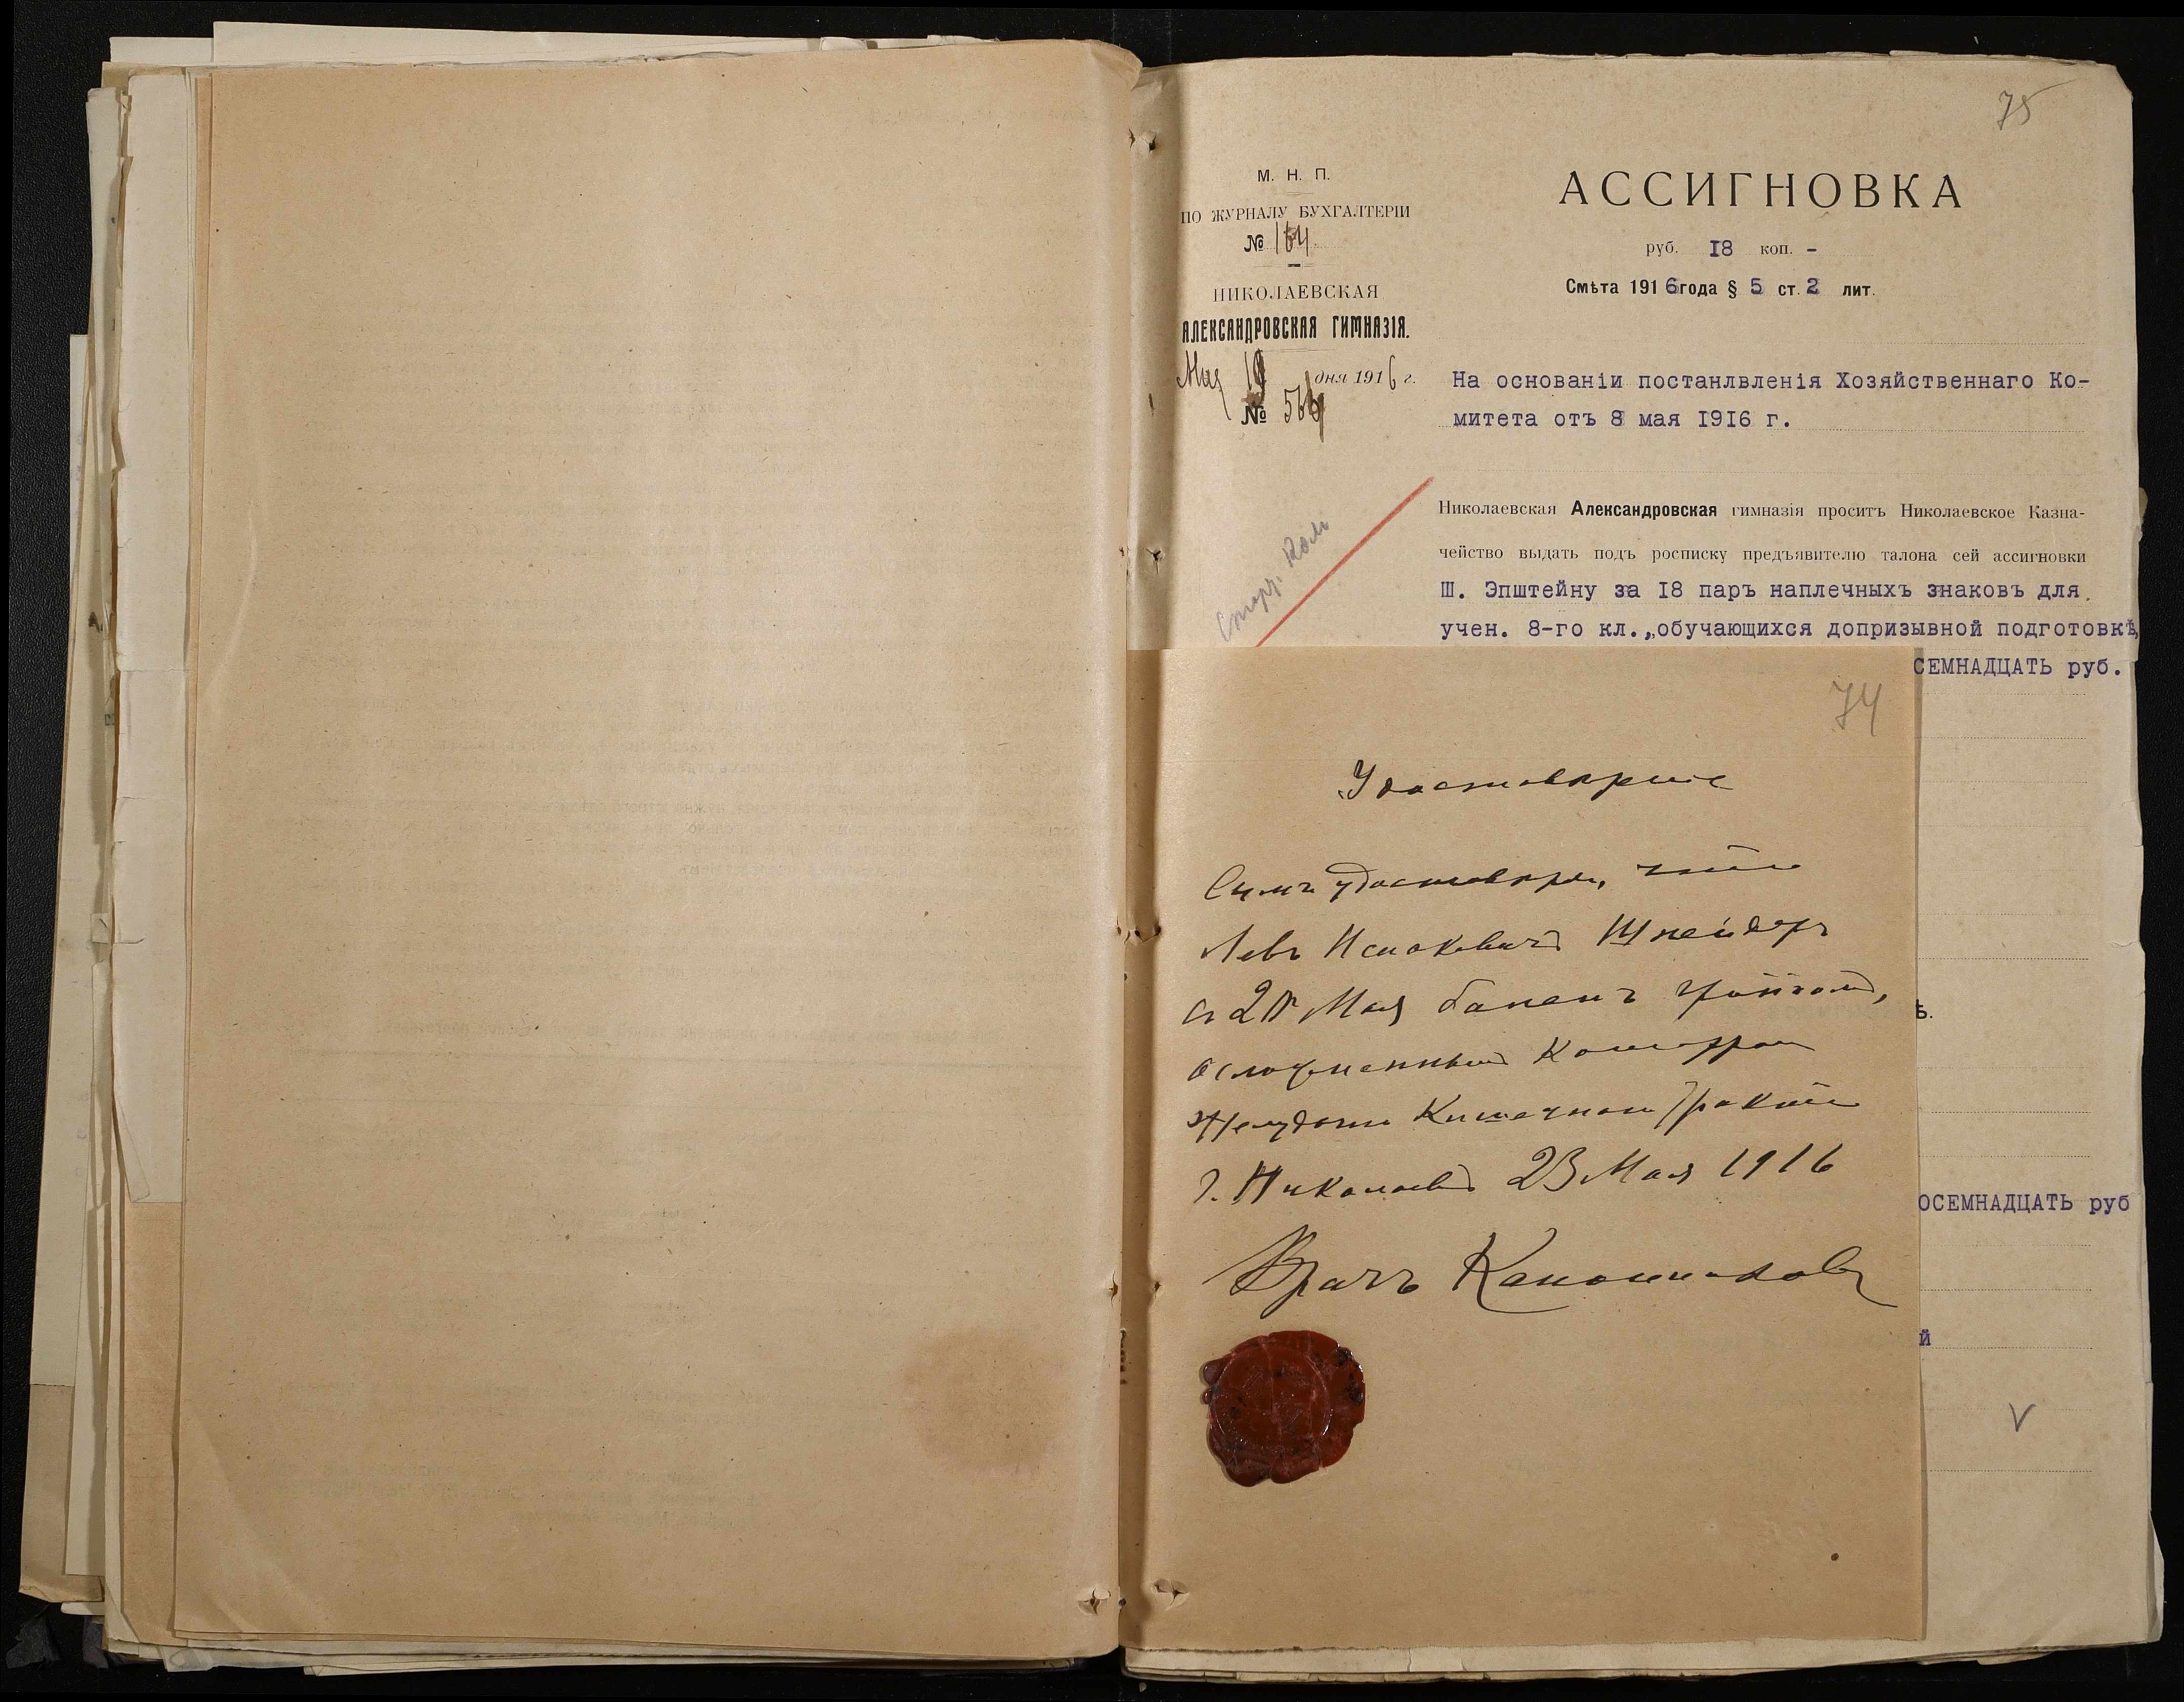 75
М. Н. П.
ПО ЖУРНАЛУ БУХГАЛТЕРІИ
№ 164
НИКОЛАЕВСКАЯ
АЛЕКСАНДРОВСКАЯ ГИМНАЗІЯ.
Мая 19 дня 1916 г.
№
АССИГНОВКА
руб. I8 коп. -
Смѣта 1916 года § 5 ст. 2 лит.
На основаніи постанлвленія Хозяйственнаго Ко-
митета отъ 8 мая I9I6 г.
Николаевская Александровская гимназія проситъ Николаевское Казна-
чейство выдать подъ росписку предъявителю талона сей ассигновки
Ш. Эпштейну за I8 паръ наплечныхъ знаковъ для
учен. 8-го кл.„обучающихся допризывной подготовкѣ,
СЕМНАДЦАТЬ руб.
ѣ.
ОСЕМНАДЦАТЬ руб
й
74
Удостоверение
Симъ удостоверяю, что
Левъ Исаковичъ Шнейдеръ
съ 20 Мая боленъ гриппомъ,
осложненнымъ Катарром
Желудочно Кишечнаго Тракта
г. Николаевъ 23 Мая 1916
Врачъ